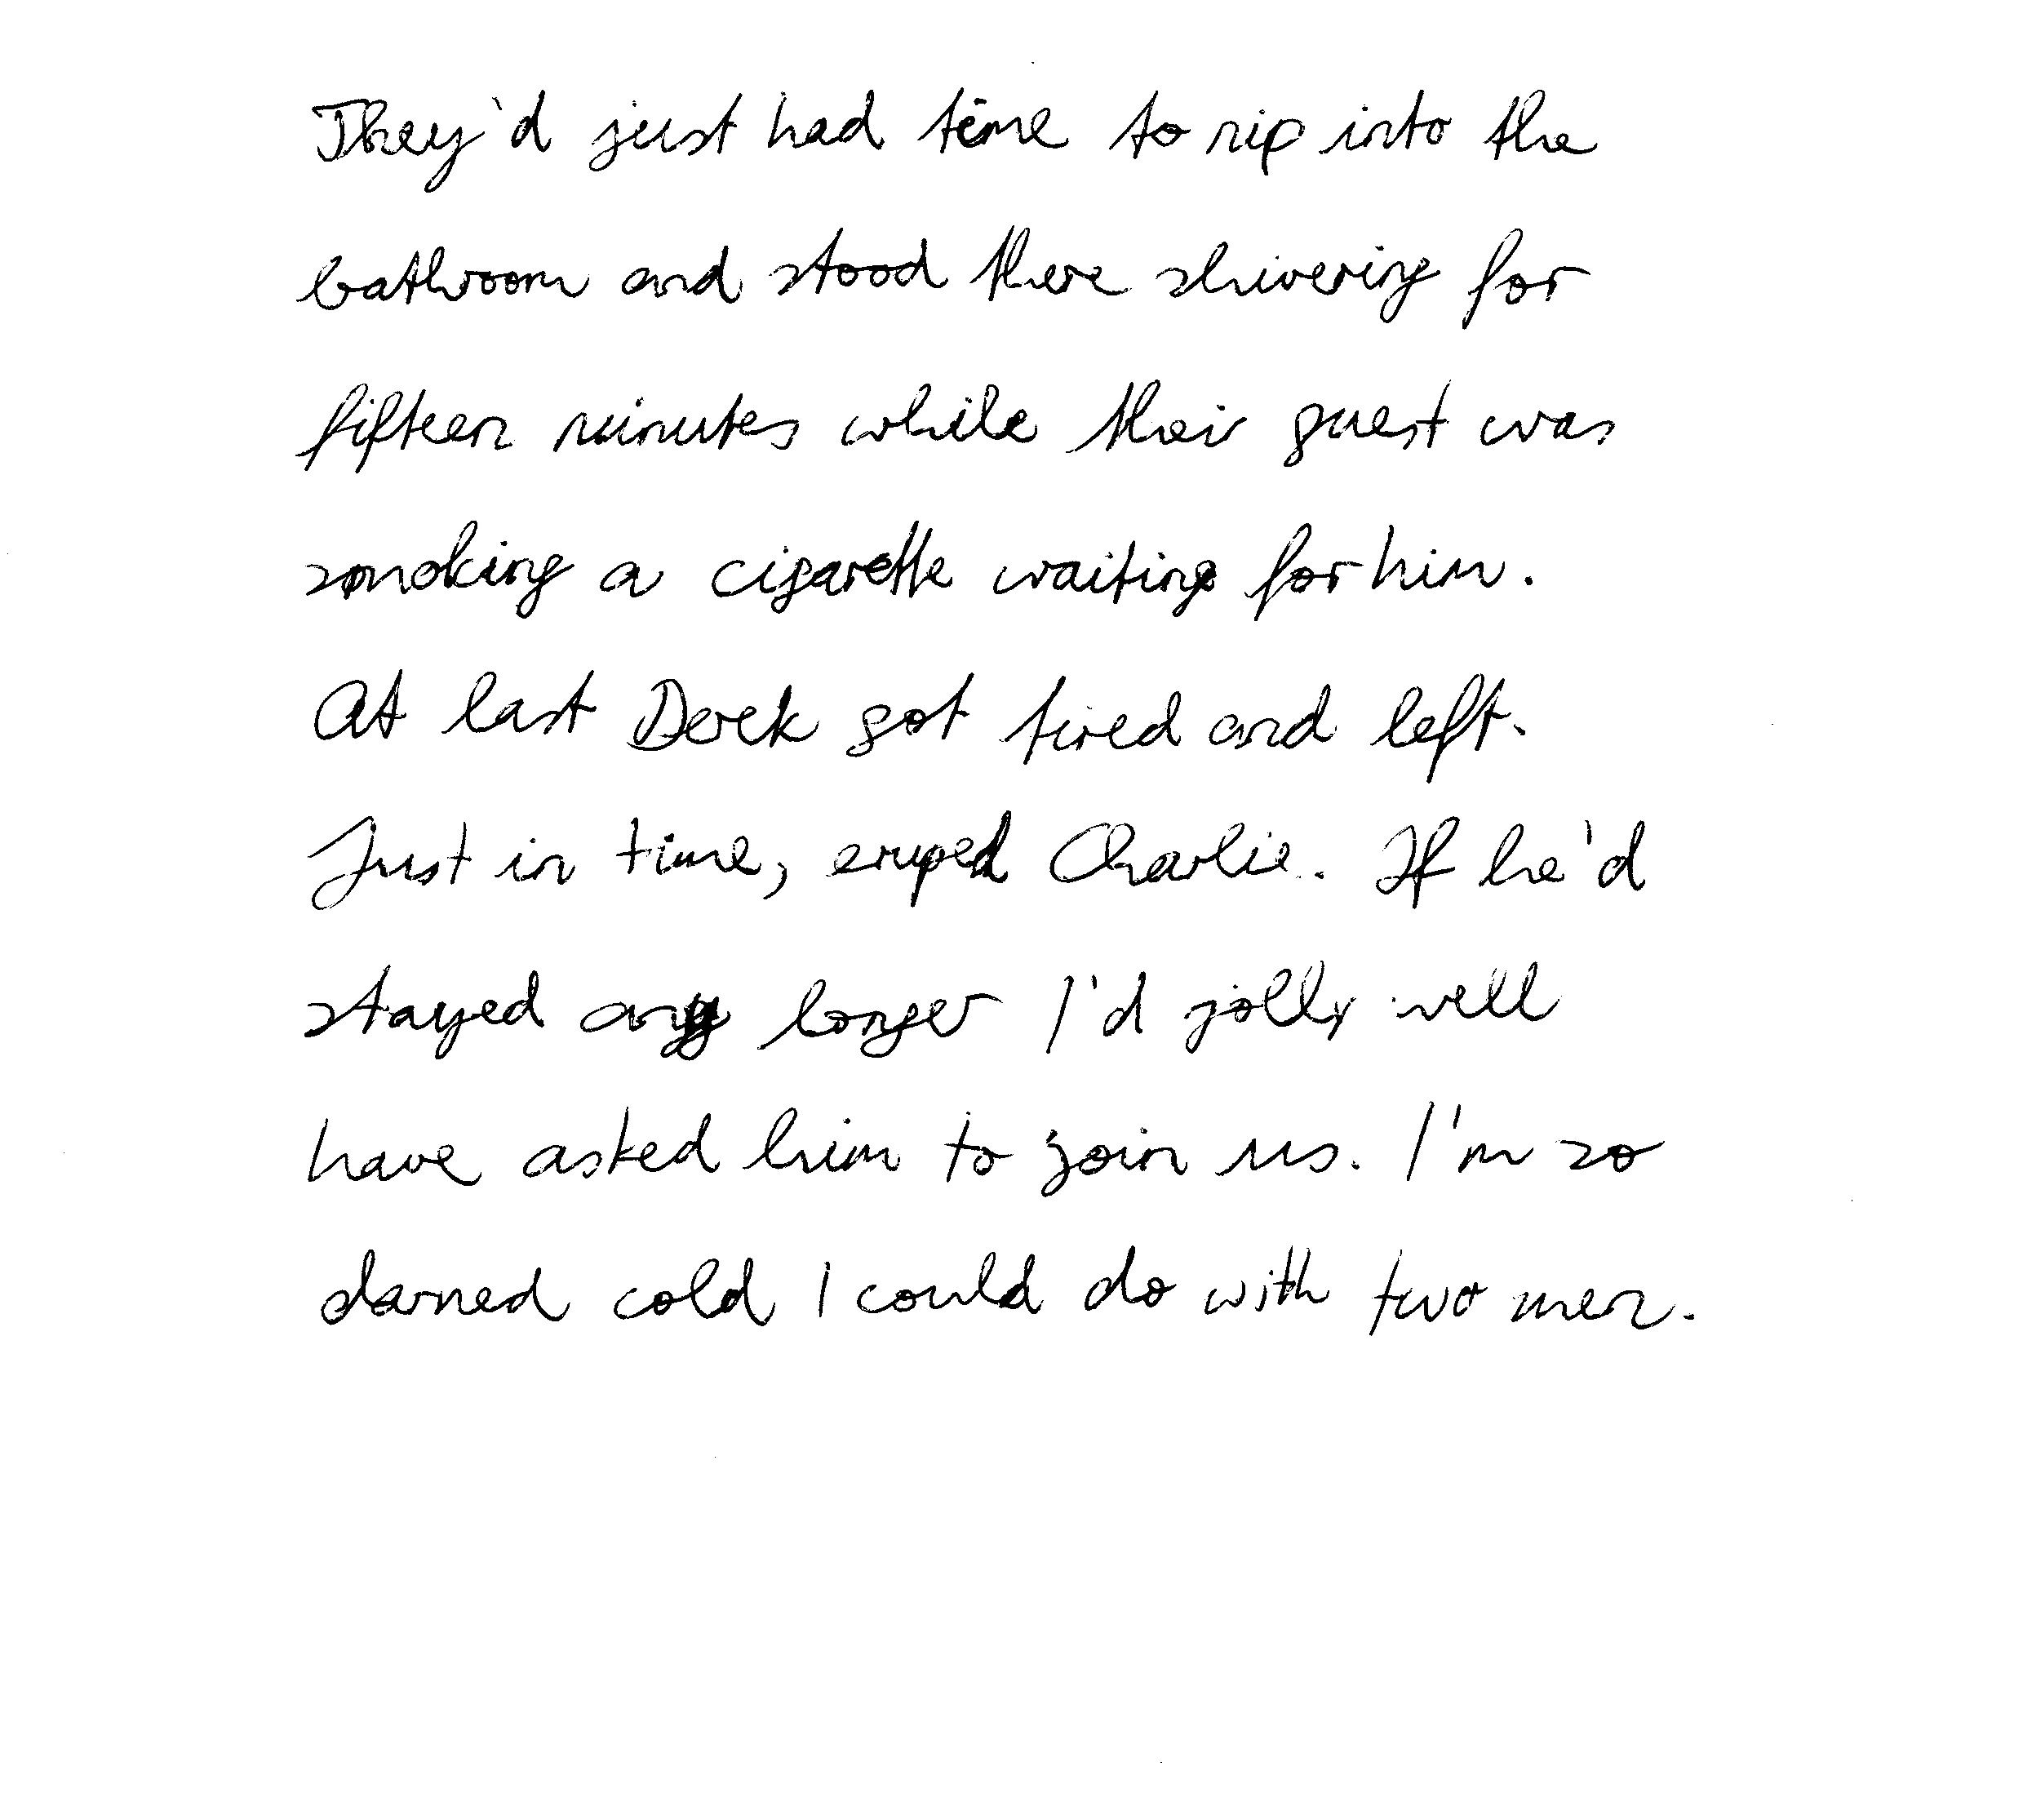 They'd just had time to rip into the
bathroom and stood there shivering for
fifteen minutes while their guest was
smoking a cigarette waiting for him.
At last Derek got tired and left.
Just in time, eruped Charlie. If he'd
stayed any longer I'd jolly well
have asked him to join us. I'm so
darned cold I could do with two men.